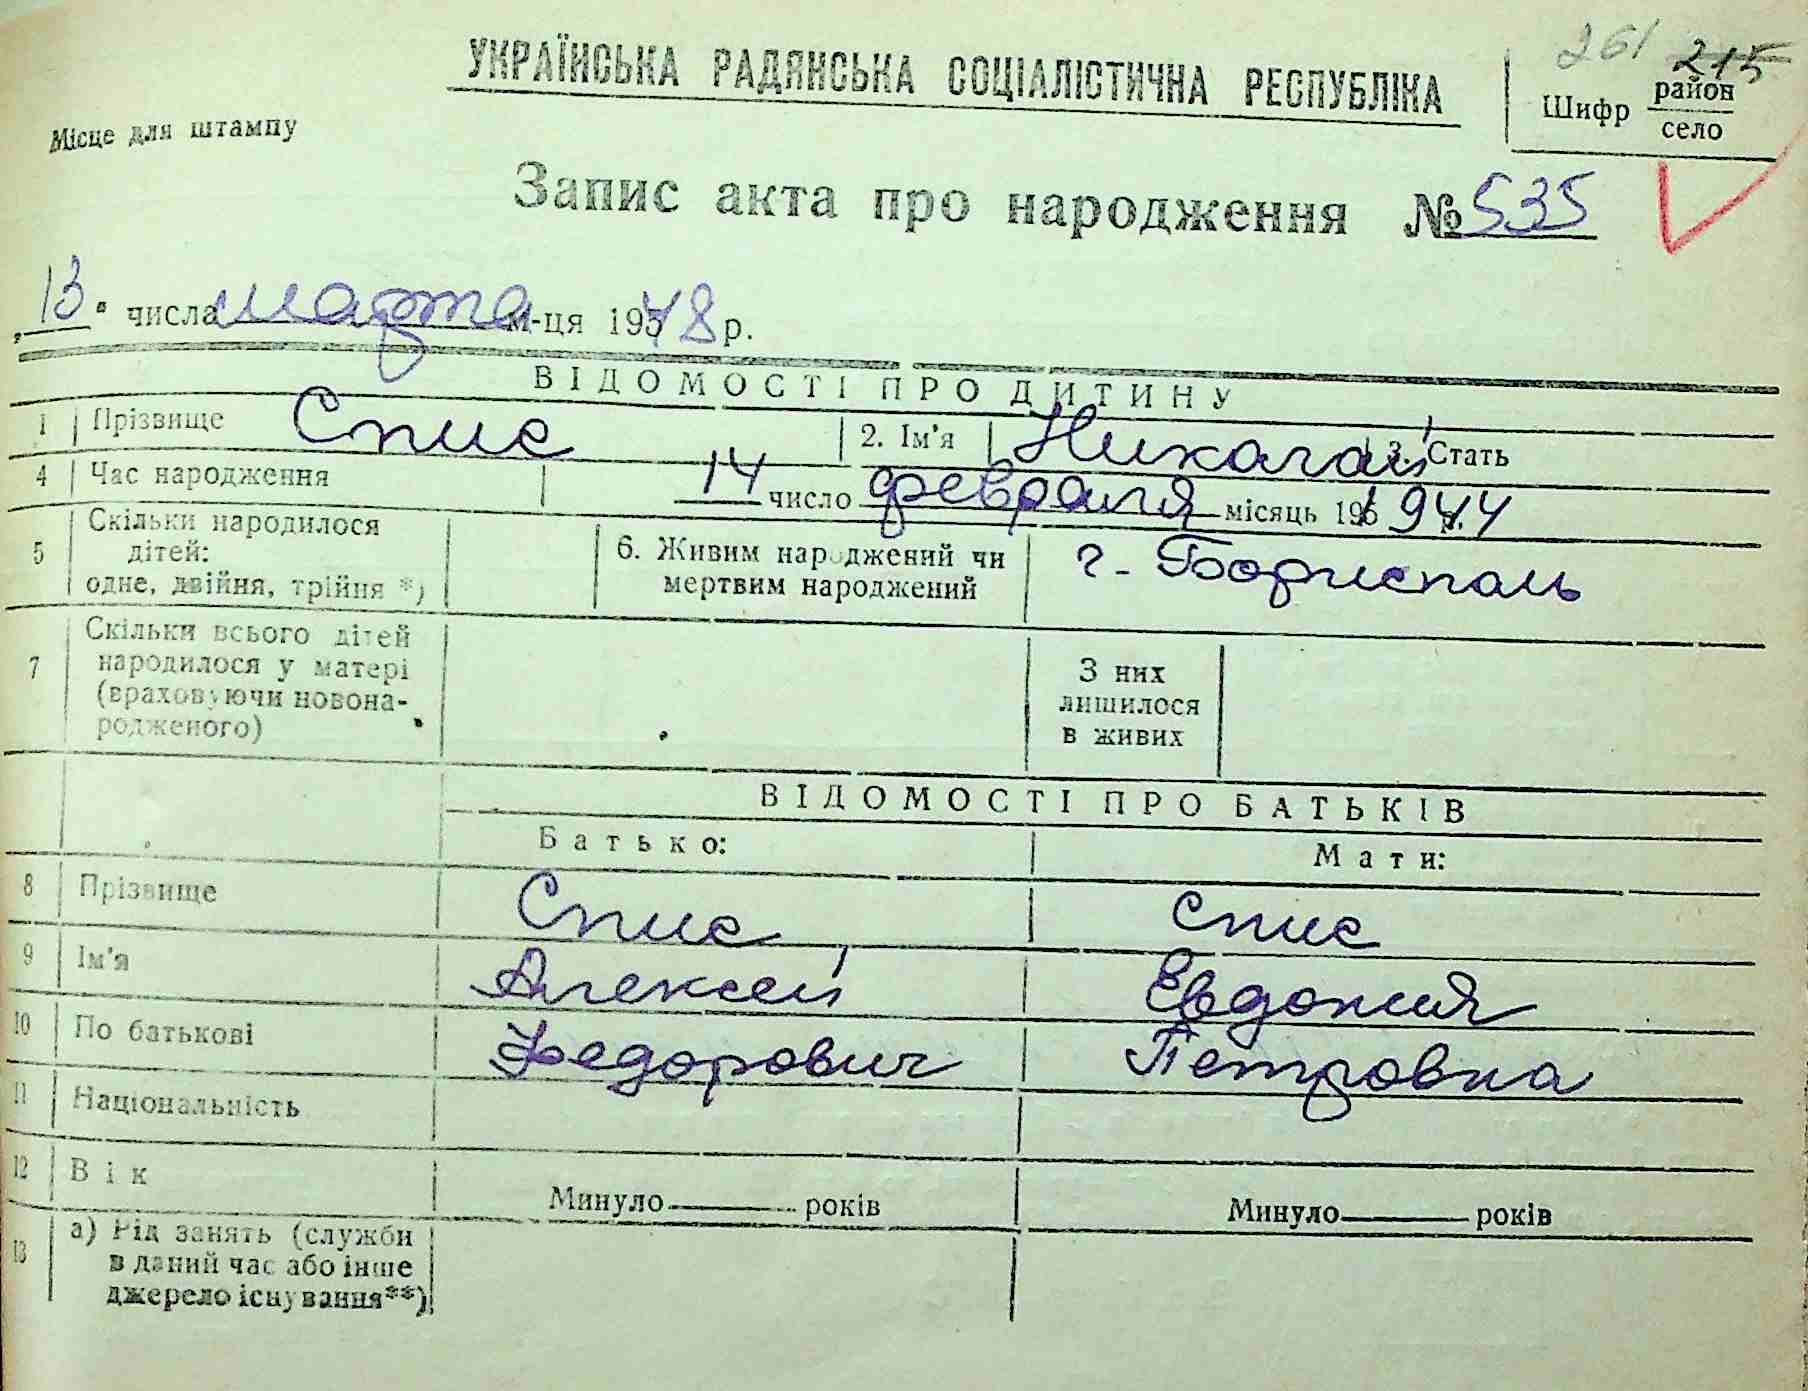 261 215
УКРАЇНСЬКА РАДЯНСЬКА СОЦІАЛІСТИЧНА РЕСПУБЛІКА
Шифр район
село
Місце для штампу
Запис акта про народження № 535
„13“ числа марта м-ця 1948 р.
ВІДОМОСТІ ПРО ДИТИНУ
1 Прізвище Спис 2. Ім'я Николай 3. Стать
4 Час народження 14 число февраля місяць 1944
5 Скільки народилося
дітей:
одне, двійня, трійня *)
6. Живим народжений чи
мертвим народжений
г. Борисполь
7 Скільки всього дітей
народилося у матері
(враховуючи новона-
родженого)
З них
лишилося
в живих
ВІДОМОСТІ ПРО БАТЬКІВ
Батько: Мати:
8 Прізвище Спис Спис
9 Ім'я Алексей Евдокия
10 По батькові Федорович Петровна
11 Національність
12 Вік Минуло років Минуло років
13 а) Рід занять (служби
в даний час або інше
джерело існування**)